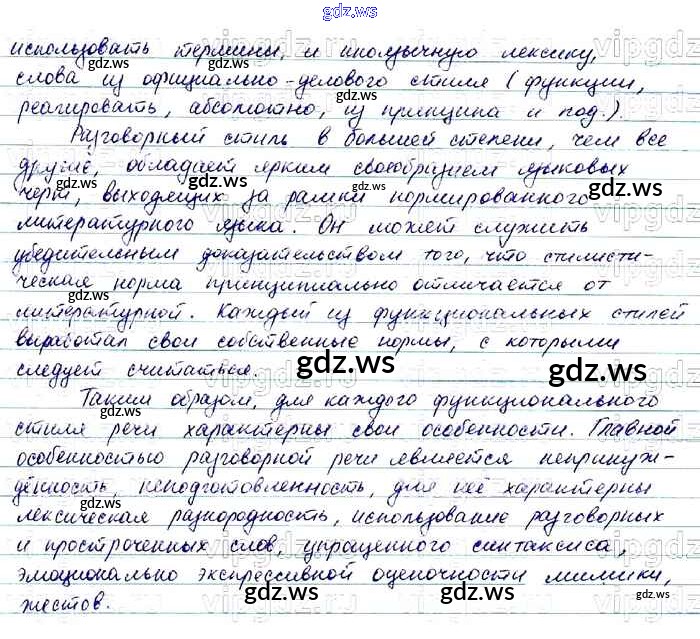 gdz.ws
использовать термины, и иноязычную лексику,
слова из официально-делового стиля (функции,
реагировать, абсолютно, из принципа и под.).
Разговорный стиль в большей степени, чем все
другие, обладает ярким своеобразием языковых
черт, выходящих за рамки нормированного
литературного языка. Он может служить
убедительным доказательством того, что стилисти-
ческая норма принципиально отличается от
литературной. Каждый из функциональных стилей
выработал свои собственные нормы, с которыми
следует считаться.
Таким образом, для каждого функционального
стиля речи характерны свои особенности. Главной
особенностью разговорной речи является непринуж-
дённость, неподготовленность, для неё характерны
лексическая разнородность, использование разговорных
и простроченных слов, упрощенного синтаксиса,
эмоционально экспрессивной оценочности мимики,
жестов.